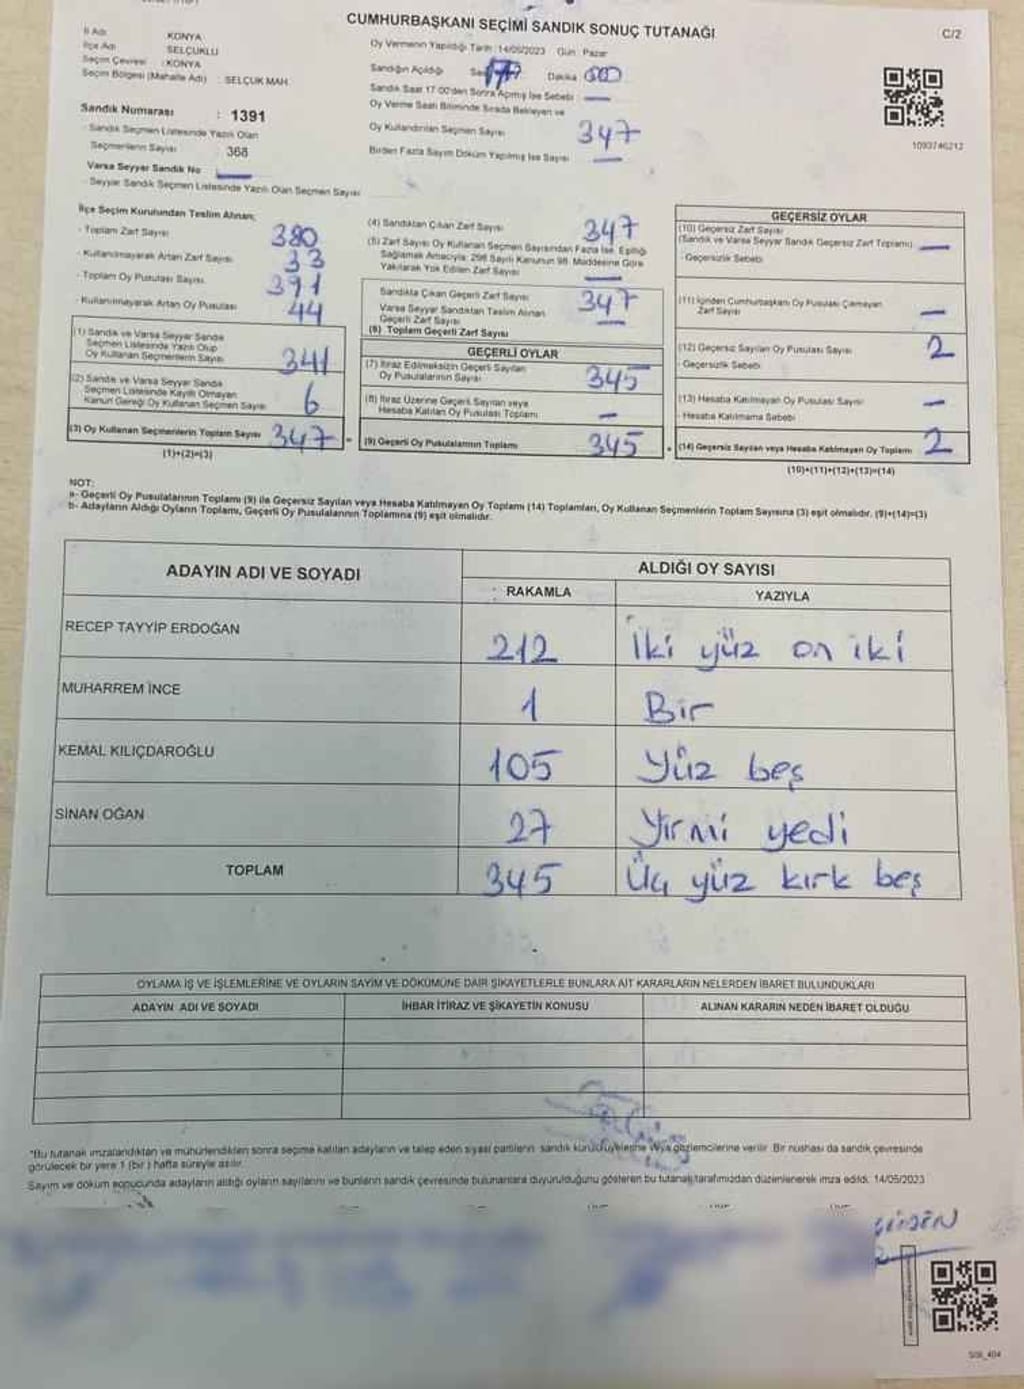 CUMHURBAŞKANI SEÇİMİ SANDIK SONUÇ TUTANAĞI
C/2
İl Adı KONYA
İlçe Adı SELÇUKLU
Seçim Çevresi : KONYA
Seçim Bölgesi (Mahalle Adı) : SELÇUK MAH.
Sandık Numarası : 1391
Sandık Seçmen Listesinde Yazılı Olan
Seçmenlerin Sayısı 368
Varsa Seyyar Sandık No
Seyyar Sandık Seçmen Listesinde Yazılı Olan Seçmen Sayısı
Oy Vermenin Yapıldığı Tarih :14/05/2023 Gün : Pazar
Sandığın Açıldığı Dakika
Sandık Saat 17.00'den Sonra Açılmış İse Sebebi
Oy Verme Saati Bitiminde Sırada Bekleyen ve
Oy Kullandırılan Seçmen Sayısı 347
Birden Fazla Sayım Döküm Yapılmış İse Sayısı
1093746212
İlçe Seçim Kurulundan Teslim Alınan;
Toplam Zarf Sayısı 380
Kullanılmayarak Artan Zarf Sayısı 33
Toplam Oy Pusulası Sayısı 391
Kullanılmayarak Artan Oy Pusulası 44
(1) Sandık ve Varsa Seyyar Sandık
Seçmen Listesinde Yazılı Olup
Oy Kullanan Seçmenlerin Sayısı 341
(2) Sandık ve Varsa Seyyar Sandık
Seçmen Listesinde Kayıtlı Olmayan
Kanun Gereği Oy Kullanan Seçmen Sayısı 6
(3) Oy Kullanan Seçmenlerin Toplam Sayısı 347 =
(1)+(2)=(3)
(4) Sandıktan Çıkan Zarf Sayısı 347
(5) Zarf Sayısı Oy Kullanan Seçmen Sayısından Fazla İse, Eşitliği
Sağlamak Amacıyla, 298 Sayılı Kanunun 98. Maddesine Göre
Yakılarak Yok Edilen Zarf Sayısı
Sandıkta Çıkan Geçerli Zarf Sayısı 347
Varsa Seyyar Sandıktan Teslim Alınan
Geçerli Zarf Sayısı
(6) Toplam Geçerli Zarf Sayısı
GEÇERLİ OYLAR
(7) İtiraz Edilmeksizin Geçerli Sayılan
Oy Pusulalarının Sayısı 345
(8) İtiraz Üzerine Geçerli Sayılan veya
Hesaba Katılan Oy Pusulası Toplamı –
(9) Geçerli Oy Pusulalarının Toplamı 345
GEÇERSİZ OYLAR
(10) Geçersiz Zarf Sayısı
(Sandık ve Varsa Seyyar Sandık Geçersiz Zarf Toplamı) —
- Geçersizlik Sebebi
(11) İçinden Cumhurbaşkanı Oy Pusulası Çıkmayan
Zarf Sayısı –
(12) Geçersiz Sayılan Oy Pusulası Sayısı 2
- Geçersizlik Sebebi
(13) Hesaba Katılmayan Oy Pusulası Sayısı –
- Hesaba Katılmama Sebebi
+ (14) Geçersiz Sayılan veya Hesaba Katılmayan Oy Toplamı 2
(10)+(11)+(12)+(13)=(14)
NOT:
a- Geçerli Oy Pusulalarının Toplamı (9) ile Geçersiz Sayılan veya Hesaba Katılmayan Oy Toplamı (14) Toplamları, Oy Kullanan Seçmenlerin Toplam Sayısına (3) eşit olmalıdır. (9)+(14)=(3)
b- Adayların Aldığı Oyların Toplamı, Geçerli Oy Pusulalarının Toplamına (9) eşit olmalıdır.
ADAYIN ADI VE SOYADI ALDIĞI OY SAYISI
RAKAMLA YAZIYLA
RECEP TAYYİP ERDOĞAN 212 İki yüz on iki
MUHARREM İNCE 1 Bir
KEMAL KILIÇDAROĞLU 105 Yüz beş
SİNAN OĞAN 27 Yirmi yedi
TOPLAM 345 Üç yüz kırk beş
OYLAMA İŞ VE İŞLEMLERİNE VE OYLARIN SAYIM VE DÖKÜMÜNE DAİR ŞİKAYETLERLE BUNLARA AİT KARARLARIN NELERDEN İBARET BULUNDUKLARI
ADAYIN ADI VE SOYADI İHBAR İTİRAZ VE ŞİKAYETİN KONUSU ALINAN KARARIN NEDEN İBARET OLDUĞU
*Bu tutanak imzalandıktan ve mühürlendikten sonra seçime katılan adayların ve talep eden siyasi partilerin sandık kurulu üyelerine veya gözlemcilerine verilir. Bir nüshası da sandık çevresinde
görülecek bir yere 1 (bir) hafta süreyle asılır.
Sayım ve döküm sonucunda adayların aldığı oyların sayılarını ve bunların sandık çevresinde bulunanlara duyurulduğunu gösteren bu tutanak tarafımızdan düzenlenerek imza edildi. 14/05/2023